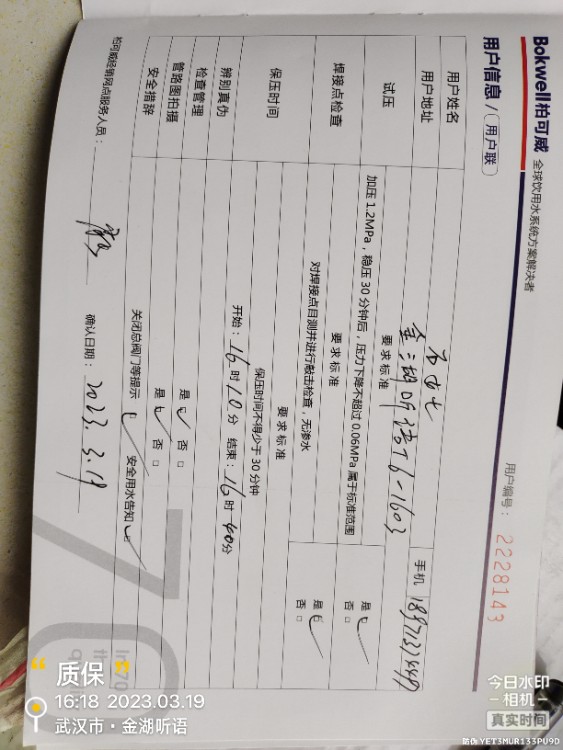 Bokwell柏可威 全球饮用水系统方案解决者
用户信息 / 用户联
用户编号： 2228143
用户姓名
手机
用户地址 金湖听语 16-1603
试压
要求标准
加压 1.2MPa，稳压 30 分钟后，压力下降不超过 0.06MPa 属于标准范围
是 ✓
否 □
焊接点检查
要求标准
对焊接点目测并进行敲击检查，无渗水
是 ✓
否 □
保压时间
要求标准
保压时间不得少于 30 分钟
开始：16 时 10 分 结束：16 时 40 分
辨别真伪
检查管理 是 ✓ 否 □
管路图拍摄 是 ✓ 否 □
安全措辞 关闭总阀门等提示 ✓ 安全用水告知 ✓
柏可威经销网点服务人员：
确认日期： 2023. 3.19
质保
16:18 2023.03.19
武汉市·金湖听语
今日水印
相机
真实时间
防伪 YET3MUR133PU9D